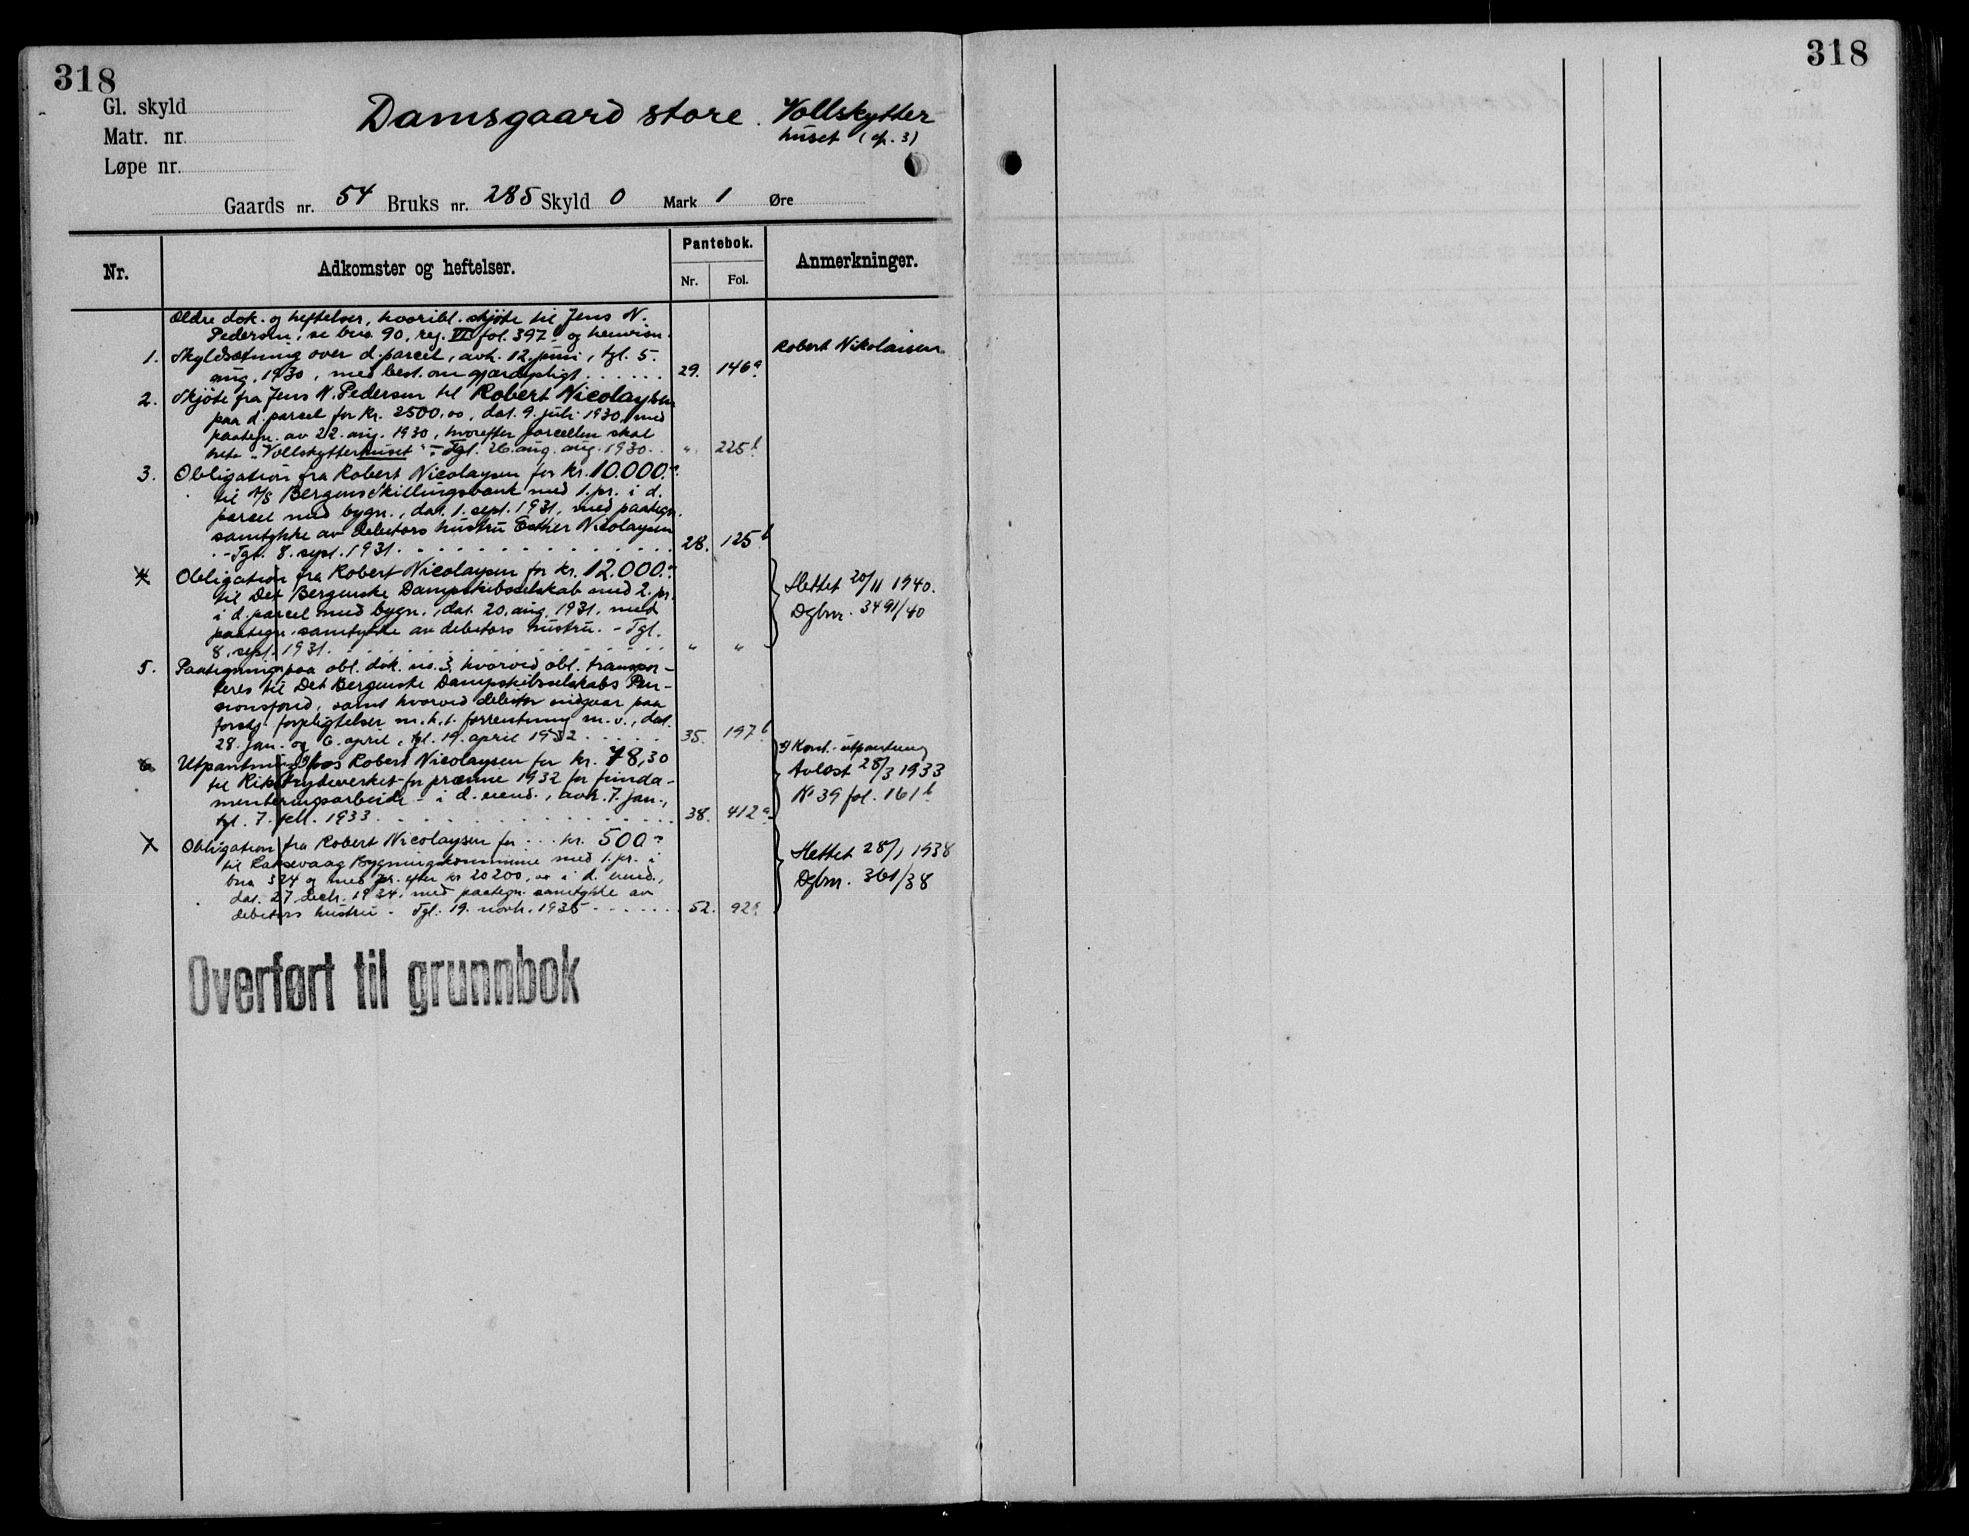 318
318
Gl. skyld
Matr. nr.
Løpe nr.
Damsgaard store. Vollskytter
huset (cf. 3)
Gaards nr. 54 Bruks nr. 285 Skyld 0 Mark 1 Øre
Nr.
Adkomster og heftelser.
Pantebok.
Nr.
Fol.
Anmerkninger.
Ældre dok. og heftelser, hvoribl. skjøte til Jens N.
Pedersen, se bno 90, reg. VI fol. 397 og henvisn.
Robert Nikolaisen
1. Skyldsætning over d. parcel, avh. 12. juni, tgl. 5.
aug. 1930, med best. om gjærdepligt . . . . . . 29. 146a
2. Skjöte fra Jens N. Pedersen til Robert Nicolaysen
paa d. parcel for kr. 2500,00, dat. 9. juli 1930, med
paategn. av 22. aug. 1930, hvorefter parcellen skal
hete "Vollskytterhuset" - Tgl. 26. aug. aug. 1930. . " 225b
3. Obligation fra Robert Nicolaysen for kr. 10.000.-
til A/S Bergens Skillingsbank med 1. pr. i d.
parcel med bygn., dat. 1. sept. 1931, med paategn.
samtykke av debitors hustru Esther Nicolaysen
- Tgl. 8. sept. 1931. . . . . . . . . . . 28. 125b
4. Obligation fra Robert Nicolaysen for kr. 12.000.-
til Det Bergenske Dampskibsselskab med 2. pr.
i d. parcel med bygn., dat. 20. aug. 1931. med
paategn. samtykke av debitors hustru. - Tgl.
8. sept. 1931. . . . . . . . . . . " "
Slettet 20/11 1940.
Dgbnr. 3491/40
5. Paategning paa obl. dok. no. 3, hvorved obl. transpor-
teres til Det Bergenske Dampskibsselskabs Pen-
sionsfond, samt hvorved debitor indgaar paa
forskj. forpligtelser m.h.t. forrentning m.v., dat.
28. jan. og 6. april, tgl. 19. april 1932 . . . . . 35. 197b
6. Utpantning hos Robert Nicolaysen for kr. 78,30
til Rikstrygdeverket for præmie 1932 for funda-
menteringsarbeide i d. eiend., avh. 7. jan.,
tgl. 7. feb. 1933. . . . . . . . . . . 38. 412a
Kont. utpantning
Avløst 28/3 1933
No 39 fol. 161b
7 Obligation fra Robert Nicolaysen for . . . kr. 500.-
til Laksevaag Bygningskommune med 1. pr. i
bno 324 og med pr. efter kr 20200,00 i d. eiend.,
dat. 27. decb. 1934, med paategn. samtykke av
debitors hustru - Tgl. 19. novb. 1935 . . . . . . 52. 92a
Slettet 28/1 1938
Dgbnr. 361/38
Overført til grunnbok